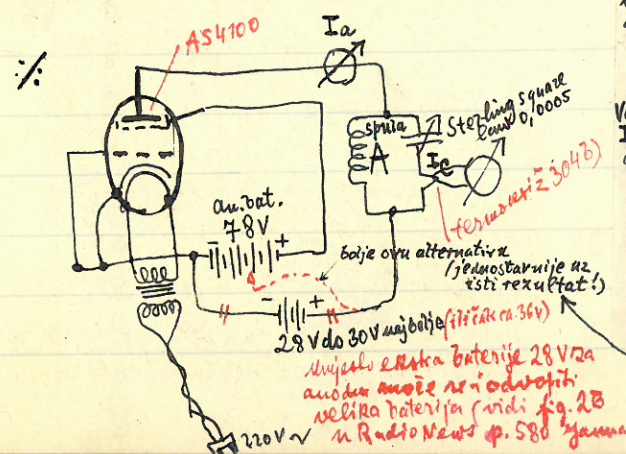 ·/.
AS4100
Ia
Sterling square
law 0,0005
spula
A
Ic
(termokriž 304B)
an. bat.
78V
- +
bolje ovu alternativu
(jednostavnije uz
isti rezultat!)
- +
28 V do 30V najbolje (ili čak ca. 36V)
umjesto ekstra baterije 28V za
anodu može se i odvojiti
velika baterija (vidi fig. 2B
u Radio News p. 580
220V ~